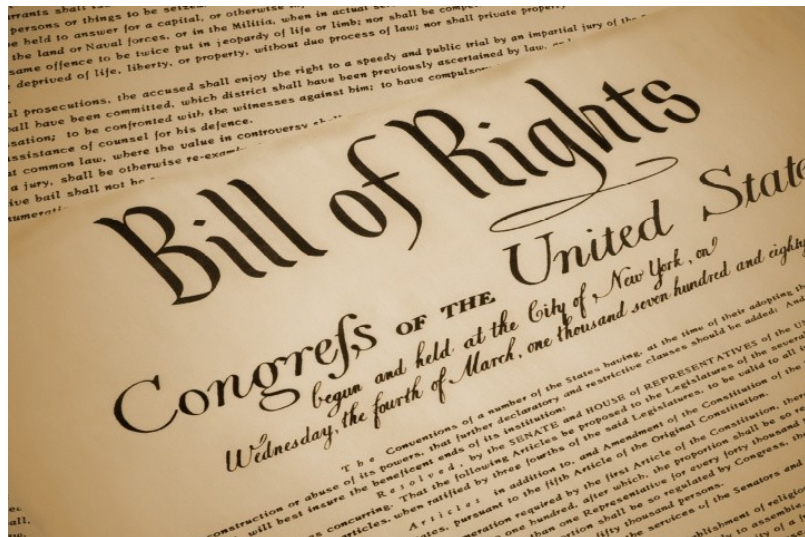 rrants shall
persons or things to be seized
be held to answer for a capital, or otherwise
the land or Naval forces, or in the Militia, when in actual
same offence to be twice put in jeopardy of life or limb; nor shall be
deprived of life, liberty, or property, without due process of law; nor shall private property
prosecutions, the accused shall enjoy the right to a speedy and public trial by an impartial jury of the
all have been committed, which district shall have been previously ascertained by law,
sation; to be confronted with the witnesses against him; to have compulsory
ssistance of counsel for his defence.
t common law, where the value in controversy
a jury, shall be otherwise re-exam
ive bail shall not be
numerati
Bill of Rights
Congreſs OF THE United State
begun and held at the City of New York, on
Wednesday, the fourth of March, one thousand seven hundred and eighty
The Conventions of a number of the States having, at the time of their adopting the
onstruction or abuse of its powers, that further declaratory and restrictive clauses should be added: And
will best insure the beneficent ends of its institution:
Resolved, by the SENATE and HOUSE of REPRESENTATIVES of the U
s concurring. That the following Articles be proposed to the Legislatures of the several
articles, when ratified by three fourths of the said Legislatures, to be valid to all in
Articles in addition to, and Amendment of the Constitution of the
ates, pursuant to the fifth Article of the Original Constitution.
meration required by the first Article of the Constitution, there
one hundred, after which, the proportion shall be so r
than one Representative for every forty thousand
ortion shall be so regulated by Congress, th
fifty thousand persons.
the services of the Senators and
ablishment of religio
ly to assemble,
ity of a f
all,